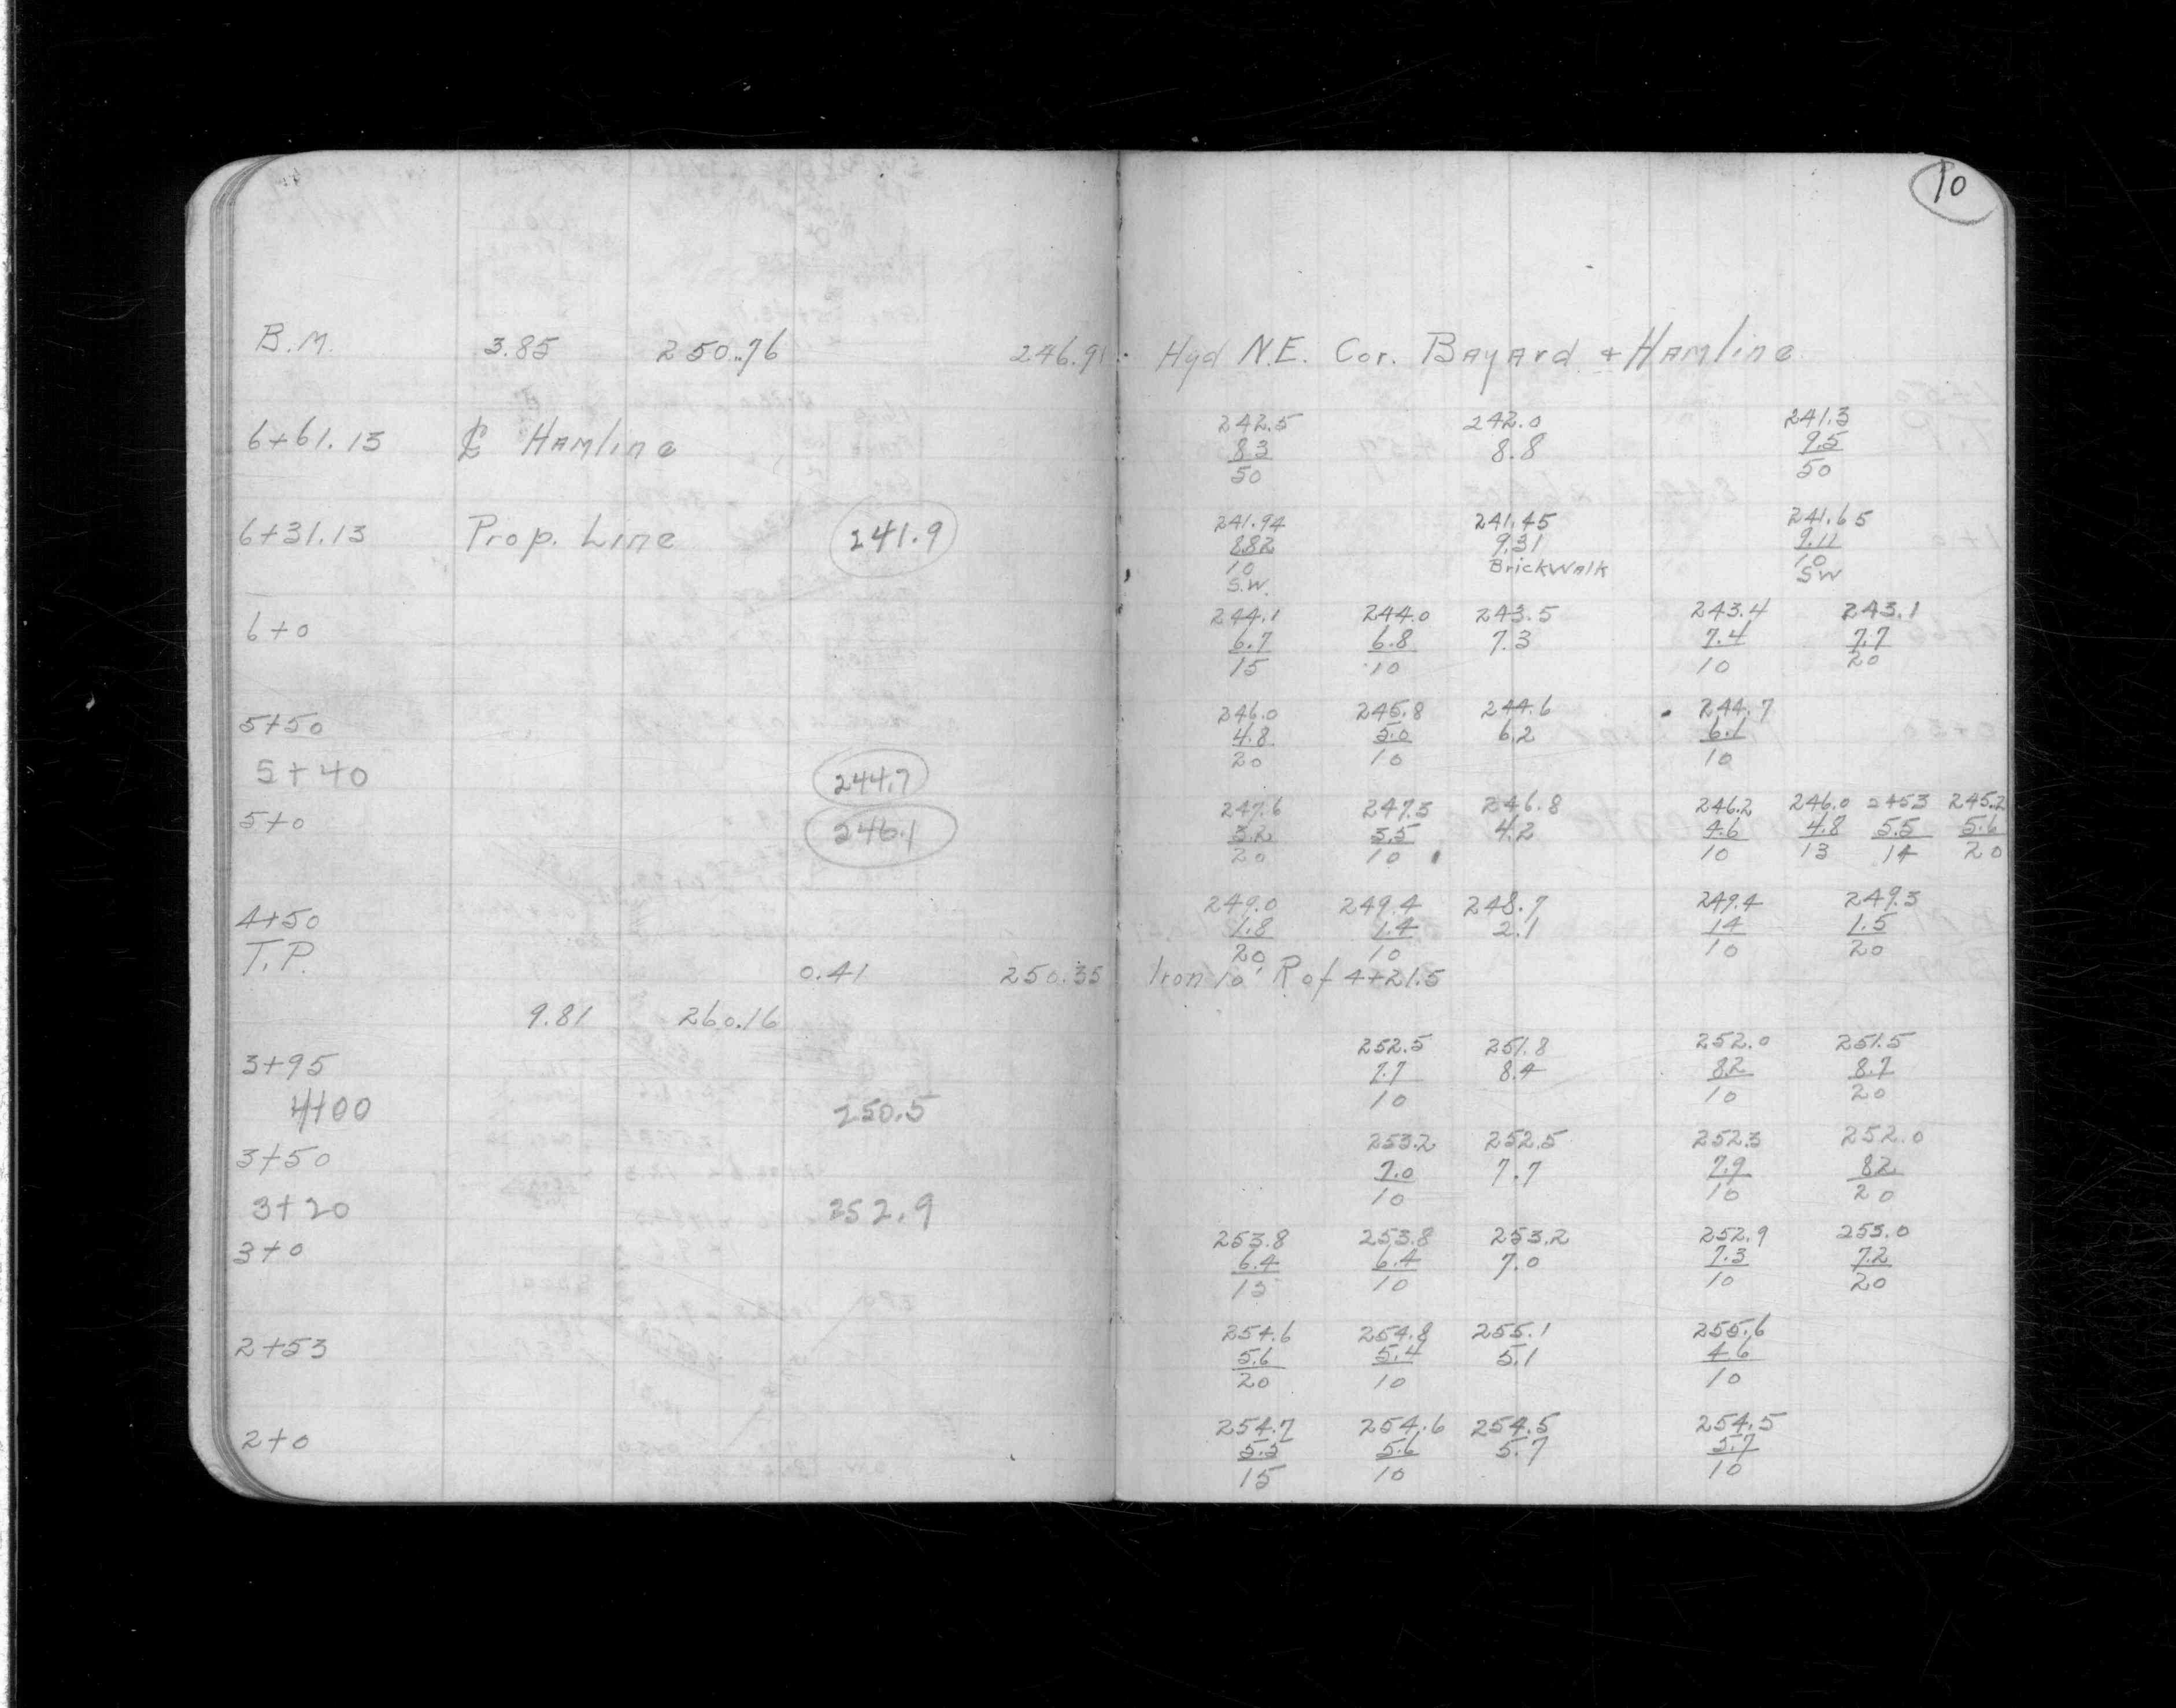 10
B.M. 3.85 250.76 246.91 Hyd N.E. Cor. Bayard & Hamline
242.5 242.0 241.3
6+61.13 ℄ Hamline 8.3 8.8 9.5
50 50
241.94 241.45 241.65
6+31.13 Prop. Line 241.9 8.82 9.31 9.11
10 BrickWalk 10
S.W. SW
244.1 244.0 243.5 243.4 243.1
6+0 6.7 6.8 7.3 7.4 7.7
15 10 10 20
246.0 245.8 244.6 244.7
5+50 4.8 5.0 6.2 6.1
20 10 10
5+40 244.7
247.6 247.3 246.8 246.2 246.0 245.3 245.2
5+0 246.1 3.2 3.5 4.2 4.6 4.8 5.5 5.6
20 10 10 13 14 20
249.0 249.4 248.7 249.4 249.3
4+50 1.8 1.4 2.1 1.4 1.5
20 10 10 20
T.P. 0.41 250.35 Iron 10' R of 4+21.5
9.81 260.16
252.5 251.8 252.0 251.5
3+95 7.7 8.4 8.2 8.7
10 10 20
4+00 250.5
253.2 252.5 252.3 252.0
3+50 7.0 7.7 7.9 8.2
10 10 20
3+20 252.9
253.8 253.8 253.2 252.9 253.0
3+0 6.4 6.4 7.0 7.3 7.2
13 10 10 20
254.6 254.8 255.1 255.6
2+53 5.6 5.4 5.1 4.6
20 10 10
254.7 254.6 254.5 254.5
2+0 5.5 5.6 5.7 5.7
15 10 10